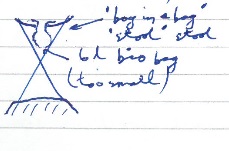 "bag in a bag"
"stool" stool
6l bio bag
(too small)